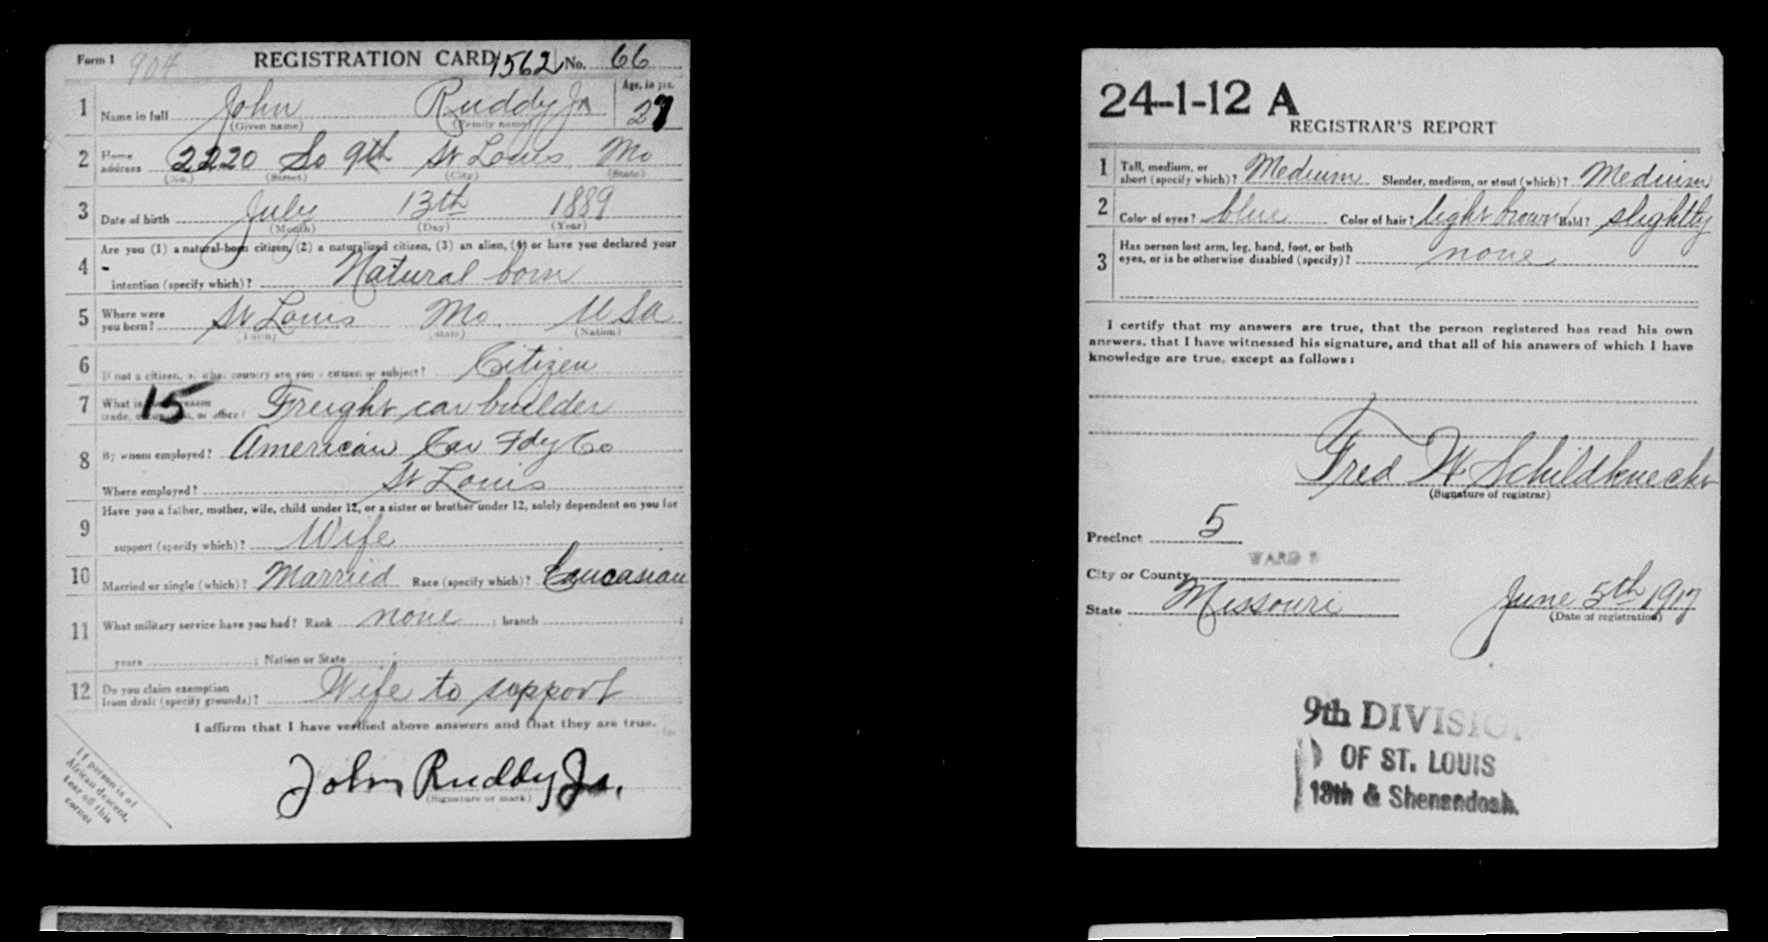 Form 1 904 REGISTRATION CARD 1562 No. 66
1 Name in full John Ruddy Jr Age, in yrs. 27
(Given name) (Family name)
2 Home address 2220 So 9th St Louis Mo
(No.) (Street) (City) (State)
3 Date of birth July 13th 1889
(Month) (Day) (Year)
Are you (1) a natural-born citizen, (2) a naturalized citizen, (3) an alien, (4) or have you declared your
4 intention (specify which)? Natural born
5 Where were you born? St Louis Mo. USA
(Town) (State) (Nation)
6 If not a citizen, of what country are you a citizen or subject? Citizen
7 What is your present trade, occupation, or office? 15 Freight car builder
8 By whom employed? American Car Fdy Co
Where employed? St Louis
9 Have you a father, mother, wife, child under 12, or a sister or brother under 12, solely dependent on you for
support (specify which)? Wife
10 Married or single (which)? Married Race (specify which)? Caucasian
11 What military service have you had? Rank none ; branch ;
years ; Nation or State
12 Do you claim exemption from draft (specify grounds)? Wife to support
I affirm that I have verified above answers and that they are true.
John Ruddy Jr.
(Signature or mark)
If person is of
African descent,
tear off this
corner
24-1-12 A
REGISTRAR'S REPORT
1 Tall, medium, or short (specify which)? Medium Slender, medium, or stout (which)? Medium
2 Color of eyes? blue Color of hair? light brown Bald? slightly
3 Has person lost arm, leg, hand, foot, or both
eyes, or is he otherwise disabled (specify)? none
I certify that my answers are true, that the person registered has read his own
answers, that I have witnessed his signature, and that all of his answers of which I have
knowledge are true, except as follows:
Fred W Schildknecht
(Signature of registrar)
Precinct 5
WARD
City or County
State Missouri June 5th 1917
(Date of registration)
9th DIVISION
OF ST. LOUIS
13th & Shenandoah.